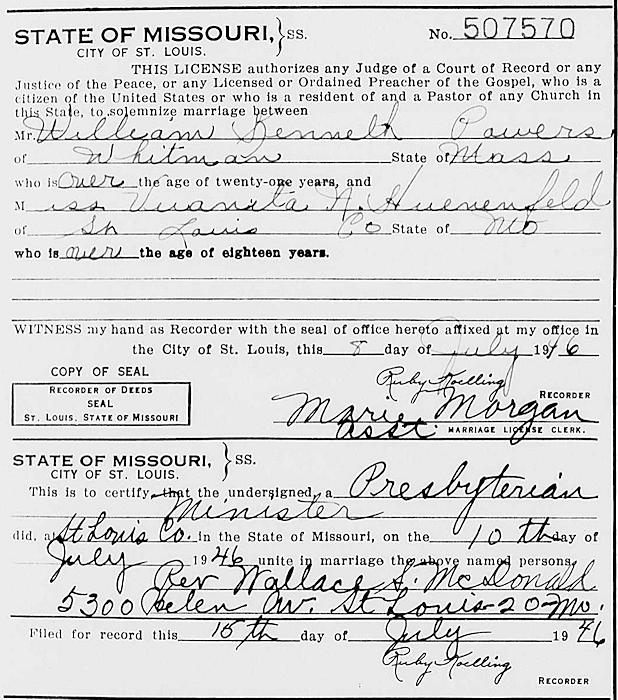 STATE OF MISSOURI, } SS. No. 507570
CITY OF ST. LOUIS.
THIS LICENSE authorizes any Judge of a Court of Record or any
Justice of the Peace, or any Licensed or Ordained Preacher of the Gospel, who is a
citizen of the United States or who is a resident of and a Pastor of any Church in
this State, to solemnize marriage between
Mr. William Kenneth Powers
of Whitman State of Mass
who is over the age of twenty-one years, and
Miss Juanita N. Huenenfeld
of St Louis Co State of Mo
who is over the age of eighteen years.
WITNESS my hand as Recorder with the seal of office hereto affixed at my office in
the City of St. Louis, this 8 day of July 1946
COPY OF SEAL
RECORDER OF DEEDS
SEAL
ST. LOUIS, STATE OF MISSOURI
Ruby Koelling
RECORDER
Marie Morgan
Asst. MARRIAGE LICENSE CLERK.
STATE OF MISSOURI, } SS.
CITY OF ST. LOUIS.
This is to certify that the undersigned, a Presbyterian
Minister
did, at St Louis Co. in the State of Missouri, on the 10 th day of
July 1946 unite in marriage the above named persons
Rev Wallace S. McDonald
5300 Helen Av. St Louis-20-Mo.
Filed for record this 15th day of July 1946
Ruby Koelling
RECORDER